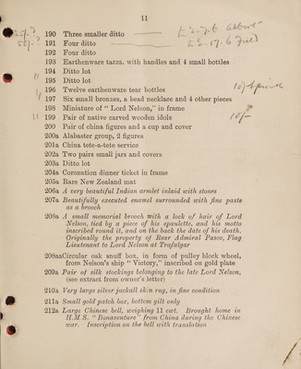 11
190 Three smaller ditto
191 Four ditto
192 Four ditto
193 Earthenware tazza, with handles and 4 small bottles
194 Ditto lot
195 Ditto lot
196 Twelve earthenware tear bottles
197 Six small bronzes, a bead necklace and 4 other pieces
198 Miniature of " Lord Nelson," in frame
199 Pair of native carved wooden idols
10/-
200 Pair of china figures and a cup and cover
200a Alabaster group, 2 figures
201a China tete-a-tete service
202a Two pairs small jars and covers
203a Ditto lot
204a Coronation dinner ticket in frame
205a Rare New Zealand mat
206a A very beautiful Indian armlet inlaid with stones
207a Beautifully executed enamel surrounded with fine paste
as a brooch
208a A small memorial brooch with a lock of hair of Lord
Nelson, tied by a piece of his epaulette, and his motto
inscribed round it, and on the back the date of his death.
Originally the property of Rear Admiral Pasco, Flag
Lieutenant to Lord Nelson at Trafalgar
208aa Circular oak snuff box, in form of pulley block wheel,
from Nelson's ship " Victory," inscribed on gold plate
209a Pair of silk stockings belonging to the late Lord Nelson,
(see extract from owner's letter)
210a Very large silver jackall skin rug, in fine condition
211a Small gold patch box, bottom gilt only
212a Large Chinese bell, weighing 11 cwt. Brought home in
H.M.S. " Bonaventure " from China during the Chinese
war. Inscription on the bell with translation